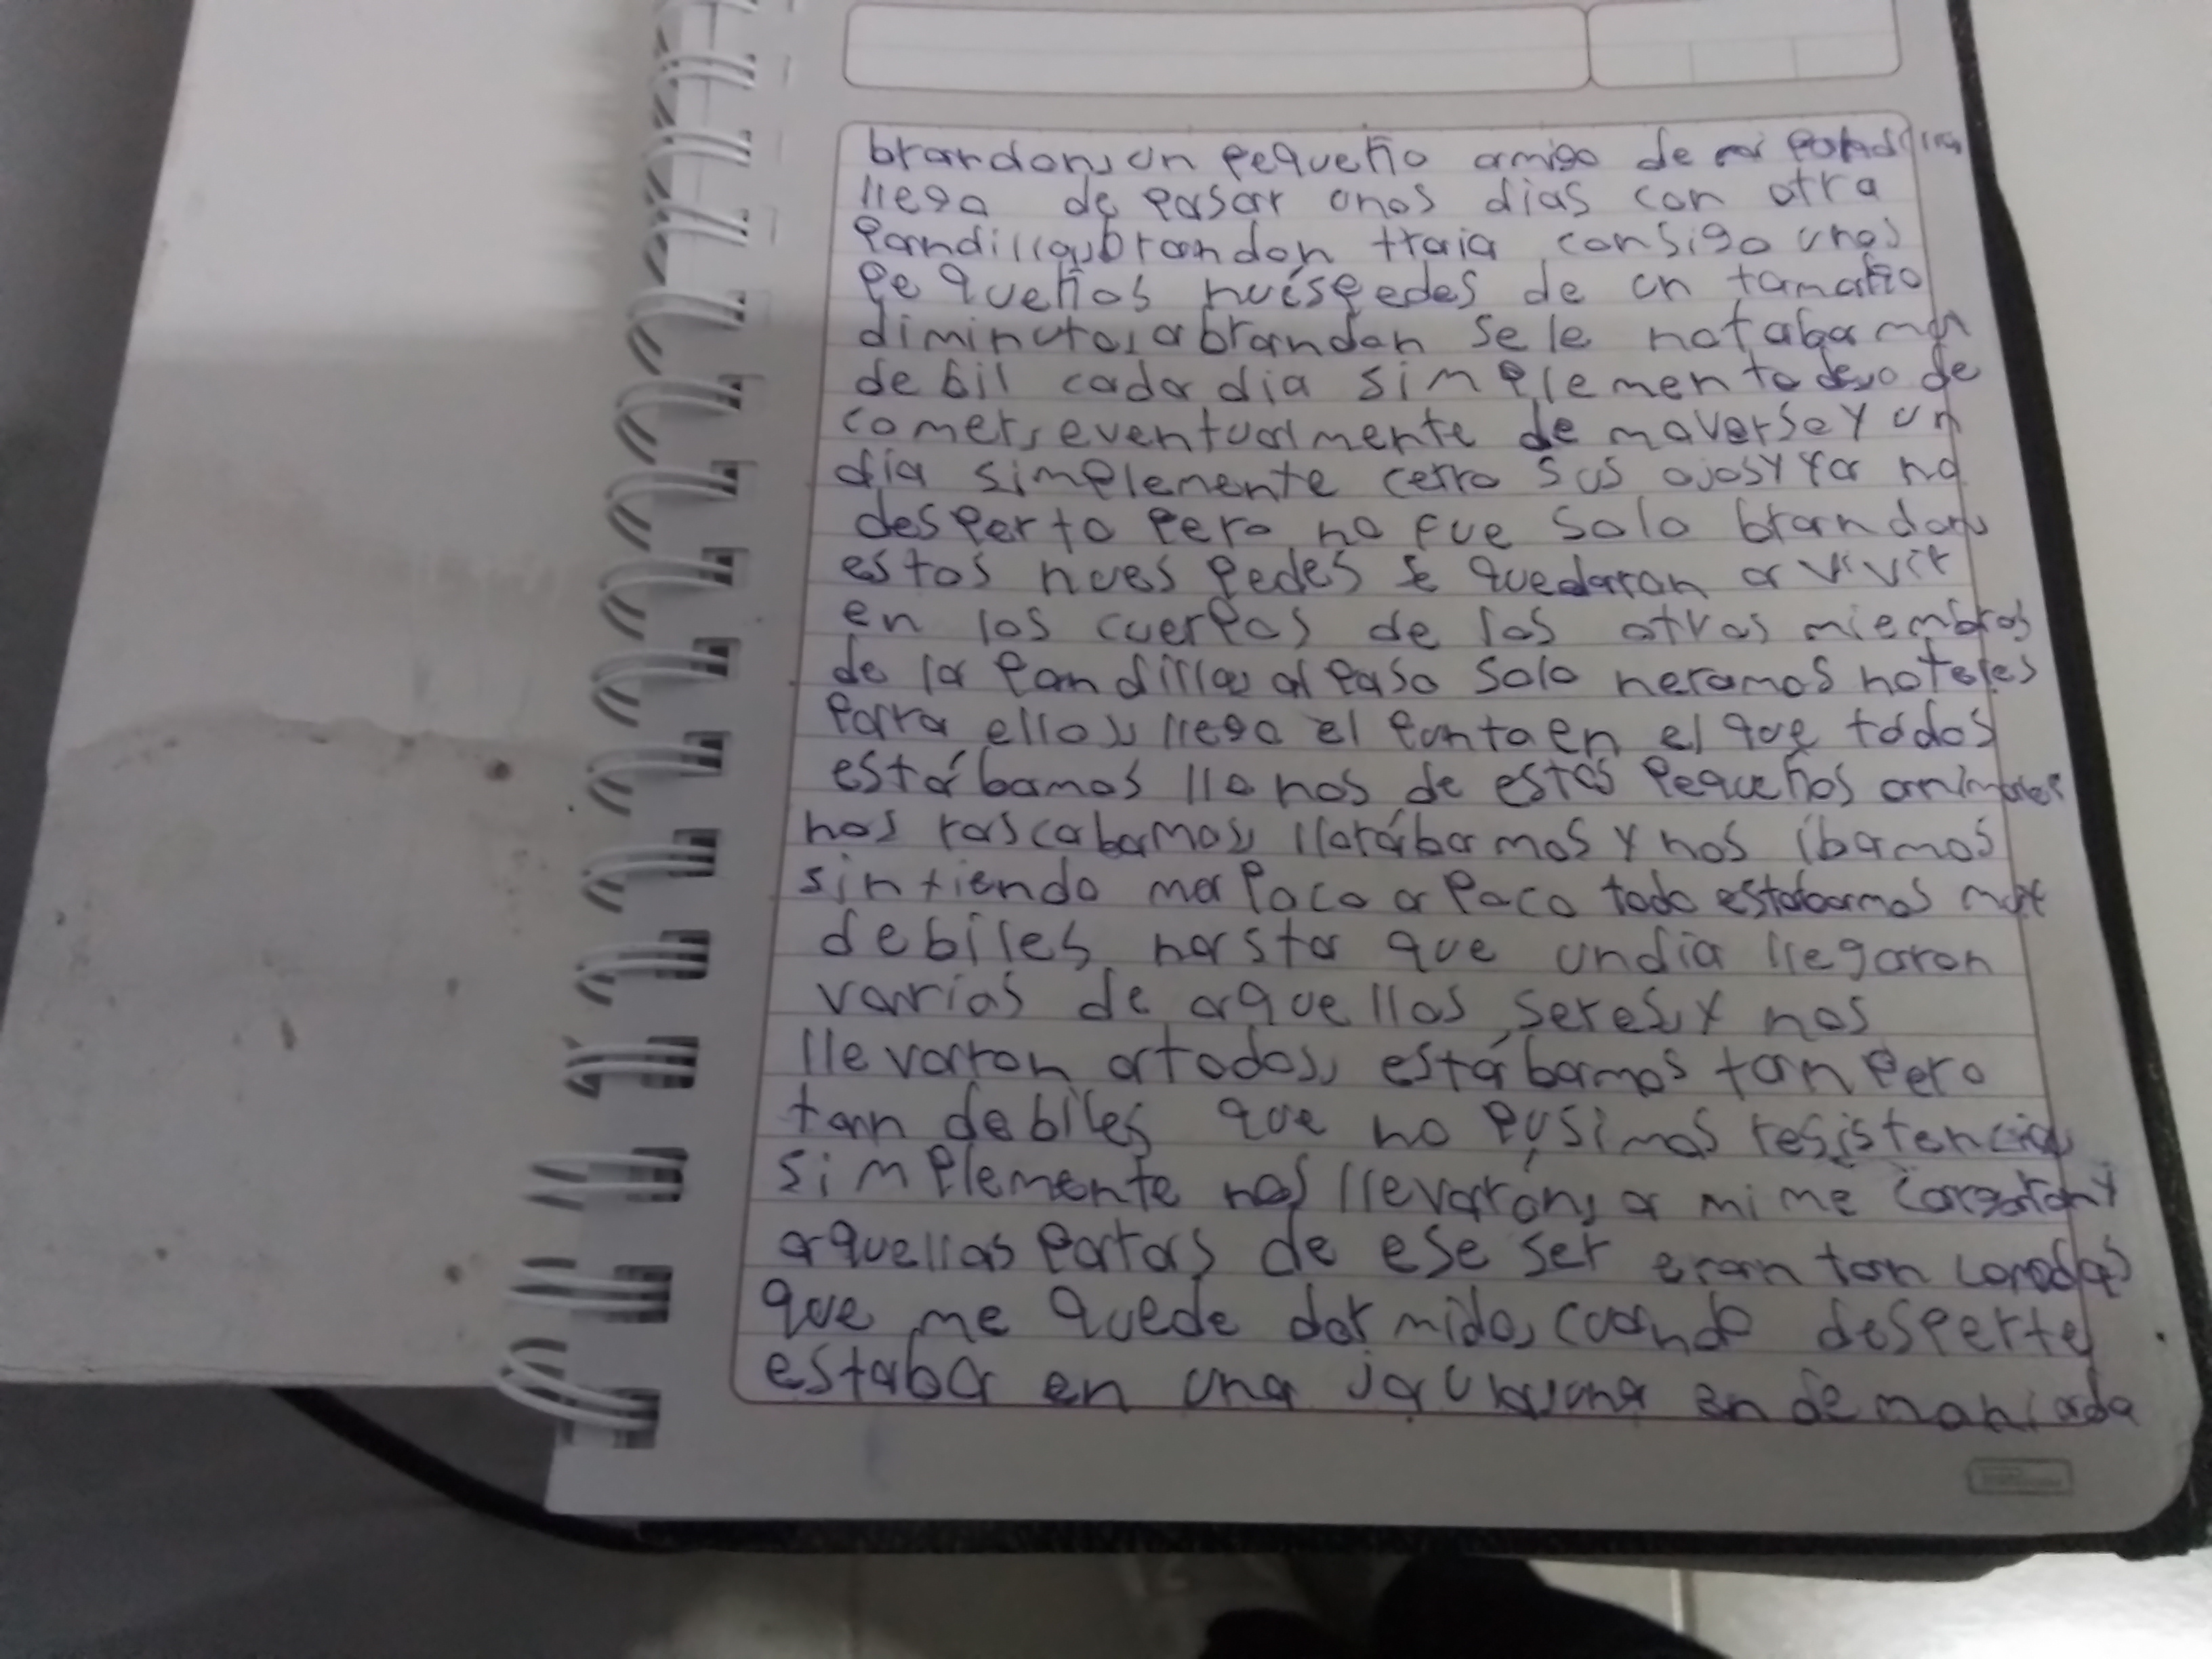 brandon, un pequeño amigo de mi
llego de pasar unos dias con otra
pandilla, brandon traia consigo unos
pequeños huéspedes de un tamaño
diminuto, a brandon se le notaba
debil cada dia simplemente dejo de
comer, eventualmente de moverse y un
día simplemente cerro sus ojos y ya no
desperto pero no fue solo brandon
estos huespedes se quedaron a vivir
en los cuerpos de los otros miembros
de la pandilla, al paso solo heramos hoteles
para ellos, llego el punto en el que todos
estábamos llenos de estos pequeños animales
nos rascabamos, llorábamos y nos íbamos
sintiendo mal poco a poco todo estabamos
debiles hasta que un día llegaron
varios de aquellos seres, y nos
llevaron a todos, estábamos tan pero
tan debiles que no pusimos resistencia
simplemente nos llevarón, a mi me cargaron y
aquellas patas de ese ser eran tan comodas
que me quede dormido, cuando desperte
estaba en una jaula, una